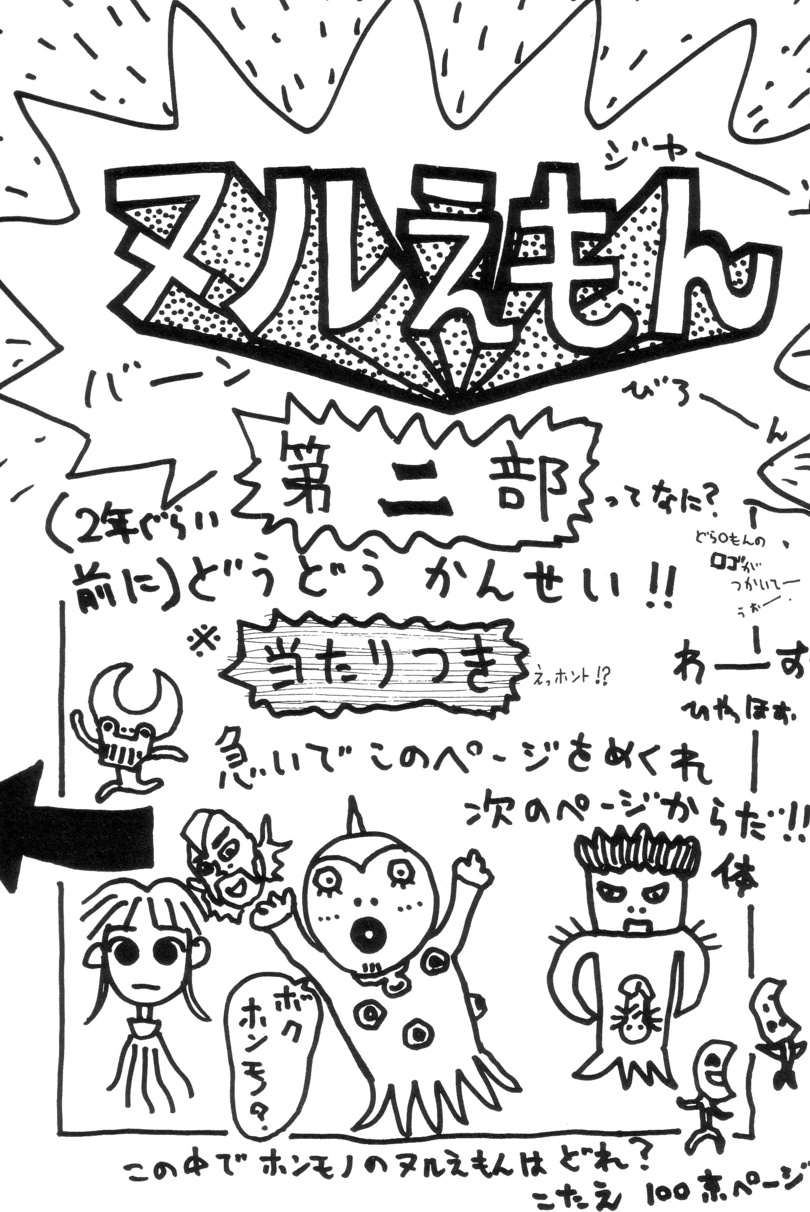 ジャー
ヌルえもん
バーン
びろーん
第二部
ってなに?
(2年ぐらい
前に)どうどう かんせい!!
どら〇もんの
ロゴが
つかいてー
うぉー
※
当たりつき
えっホント!?
わーーす
ひゃっほぅ
急いでこのページをめくれ
次のページからだ!!
体
ボク
ホンモノ?
この中でホンモノのヌルえもんはどれ?
こたえ 100京ページ